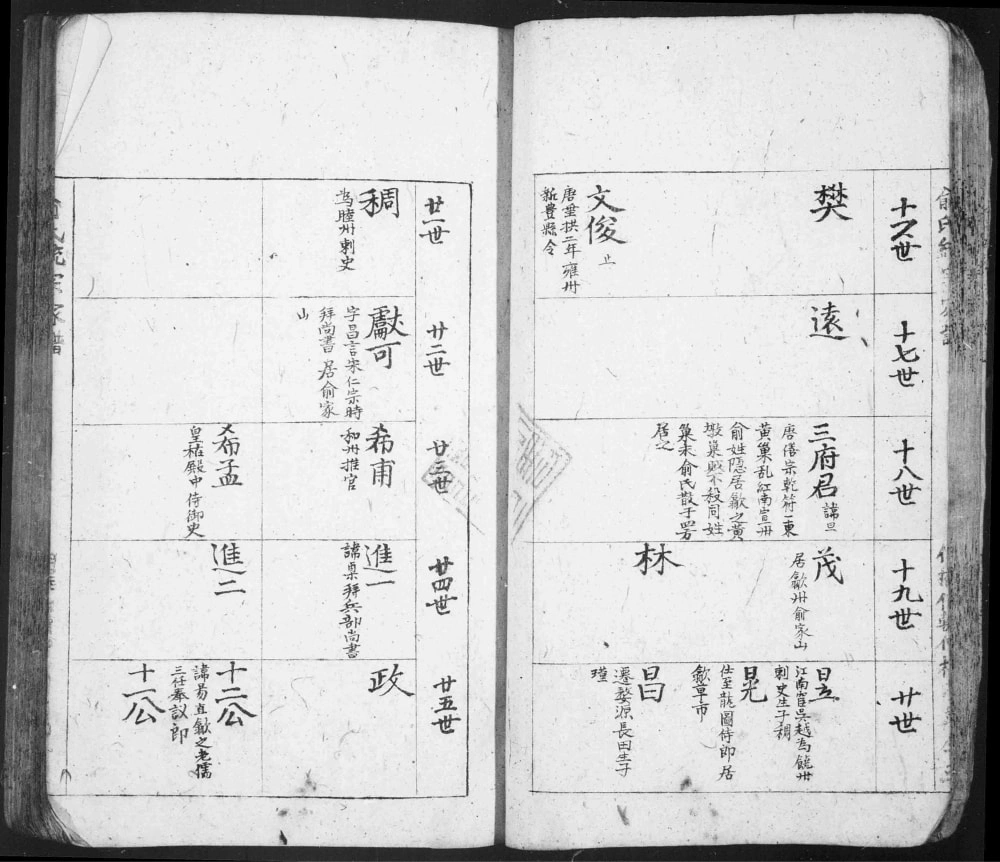 十六世
樊
文俊
止
唐垂拱二年雍州
新豊縣令
十七世
遠
十八世
三府君 諱旦
唐僖宗乾符一東
黄巢乱紅南宣州
俞姓隐居歙之黄
墩巢賊不殺同姓
巢来俞氏散于四方
居之
十九世
茂
居歙州俞家山
林
廿世
昱
江南官吳越為饒州
刺史生子稠
晃
仕至龍圖侍郎居
歙草市
昌
遷婺源長田生子
瑾
廿一世
稠
為睦州刺史
廿二世
獻可
字昌言宋仁宗時
拜尚書 居俞家
山
廿三世
希甫
和州推官
希孟
皇祐殿中侍御史
廿四世
進一
諱㮚拜兵部尚書
進二
廿五世
政
十二公
諱易直歙之老儒
三任奉議郎
十一公